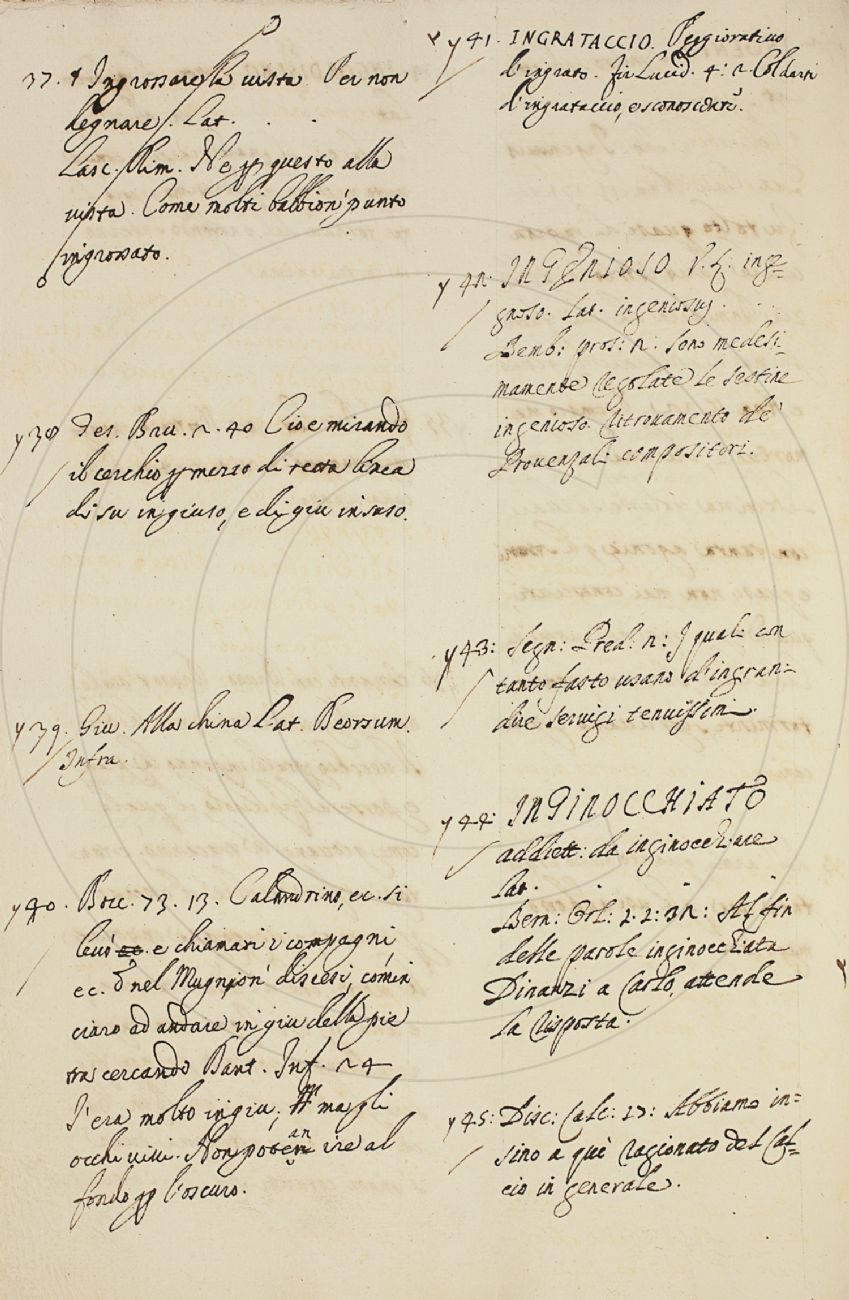 37. Ingrossare la vista Per non
degnare. Lat. . .
Lasc. Rim. Ne p questo alla
vista. Come molti babbion' punto
ingrossato.
y 38 Tes. Bru. 2. 40 Cioe mirando
il cerchio p mezzo di recta linea
di su in giuso, e di giu in suso.
y 39. Giu. Alla china Lat. Deorsum.
Infra.
y 40. Bocc. 73. 13. Calandrino, ec. si
levò ec. e chiamari i compagni,
ec. nel Mugnon' discesi, comin
ciaro ad andare in giu della pie
tra cercando Dant. Inf. 24
I' era molto in giu; ma gli
occhi vivi. Non potean ire al
fondo p l'oscuro.
y 41. INGRATACCIO. Peggiorativo
d'ingrato. Fir Lucid. 4: 2 Coldarsi
d'ingrataccio, e sconoscente.
y 42. INGENIOSO V. L. inge=
gnoso. Lat. ingeniosus . . .
Bemb: pros: 2: sono medesi=
mamente regolate le sestine
ingenioso ritrovamento de'
Provenzali compositori.
y 43: Segn: Pred: 2: I quali con
tanto fasto usano d'ingran=
dire servigi tenuissimi.
y 44: INGINOCCHIATO
addiett: da inginocchiare
Lat. . .
Bern: Orl: 2. 2: 32: Al fin
delle parole inginocchiata
Dinanzi a Carlo, attende
la risposta.
y 45: Disc: Calc: 23: Abbiamo in=
sino a quì ragionato del Cal=
cio in generale.